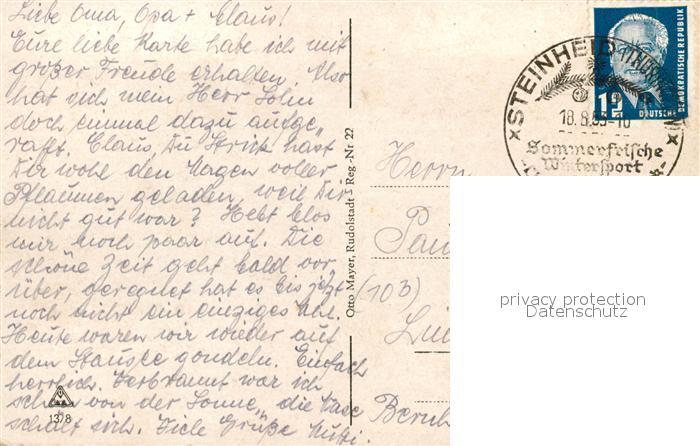 Liebe Oma, Opa + Claus!
Eure liebe Karte habe ich mit
großer Freude erhalten. Also
hat sich mein Herr Sohn
doch einmal dazu aufge-
rafft. Claus, Du Strick hast
Dir wohl den Magen voller
Pflaumen geladen, weil Dir
nicht gut war? Hebt blos
mir noch paar auf. Die
schöne Zeit geht bald vor-
über, geregnet hat es bis jetzt
noch nicht ein einziges Mal.
Heute waren wir wieder auf
dem Stausee gondeln. Einfach
herrlich. Verbrannt war ich
schon von der Sonne, die Nase
schält sich. Viele Grüße Mutti.
13/8
Otto Mayer, Rudolstadt 1 Reg.-Nr. 22
DEUTSCHE DEMOKRATISCHE REPUBLIK
12
STEINHEID (THÜR
18.8.
Sommerfrische
Wintersport
Herrn
Pau
(10b)
Bernh
privacy protection
Datenschutz